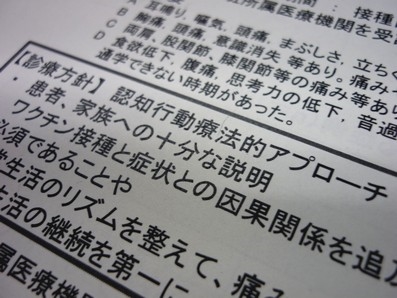 間：接種
所属医療機関を受
A 耳鳴り、嘔気、頭痛、まぶしさ、立ちく
B 胸痛、頭痛、意識消失 等あり。痛み
C 両肩、股関節、膝関節等の痛み等あり
D 食欲低下、腹痛、思考力の低下、音過
通学できない時期があった。
【診療方針】 認知行動療法的アプローチ
・患者、家族への十分な説明
ワクチン接種と症状との因果関係を追及
必須であることや
生活のリズムを整えて、痛み
生活の継続を第一に
属医療機関